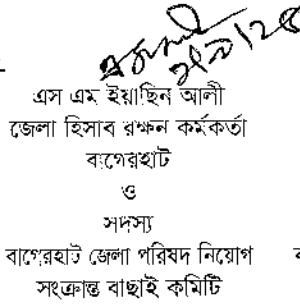 এস এম ইয়াছিন আলী
জেলা হিসাব রক্ষন কর্মকর্তা
বাগেরহাট
ও
সদস্য
বাগেরহাট জেলা পরিষদ নিয়োগ
সংক্রান্ত বাছাই কমিটি